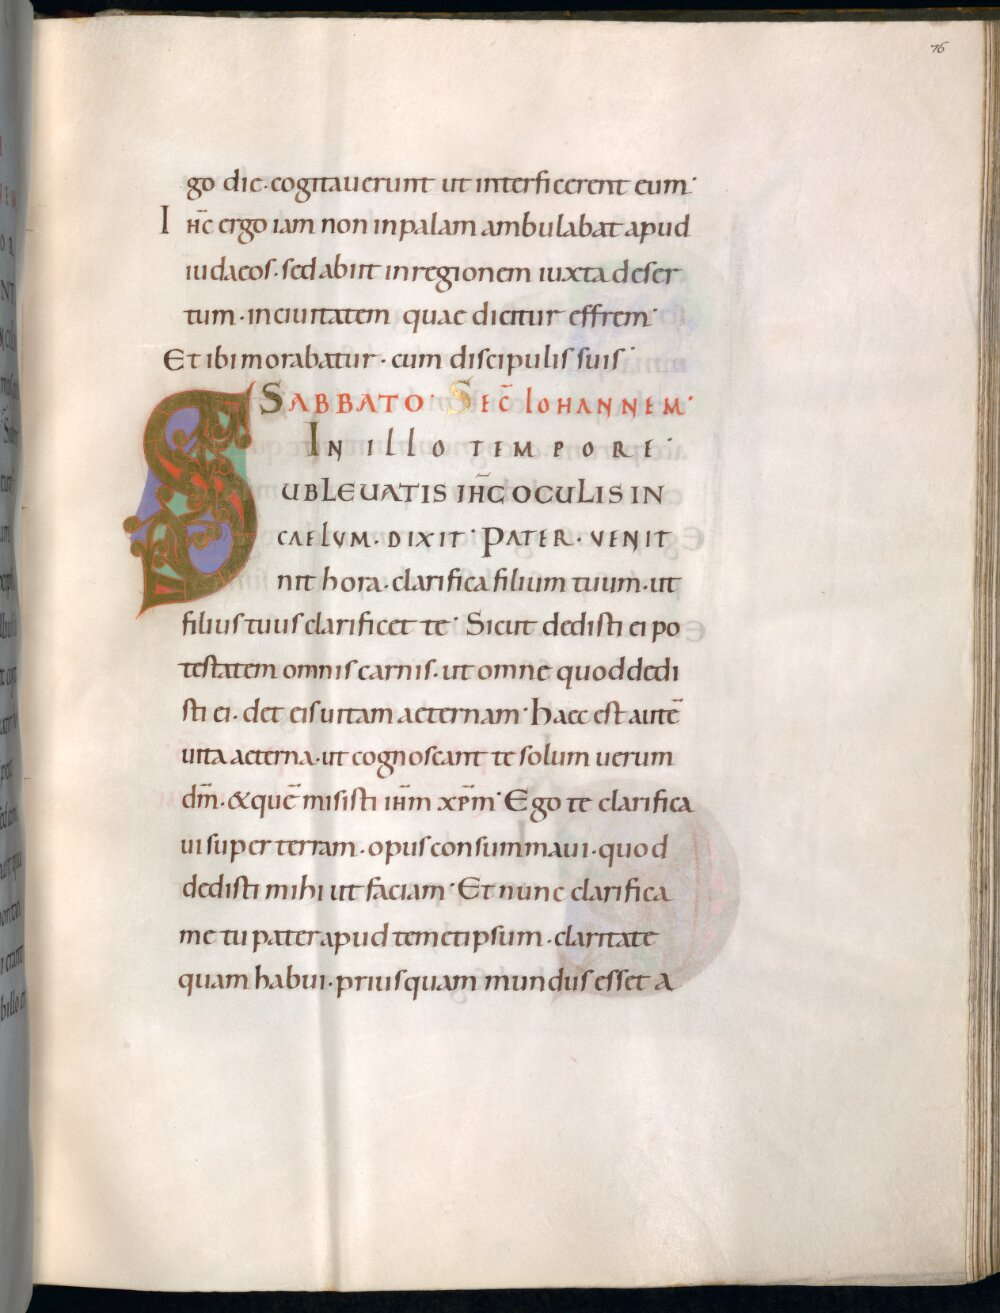 76
go die· cogitauerunt ut interficerent eum·
I ħc ergo iam non in palam ambulabat apud
iudaeos· sed abiit in regionem iuxta deser
tum· in ciuitatem quae dicitur effrem·
Et ibi morabatur· cum discipulis suis·
SABBATO· SEC̄ IOHANNEM·
IN ILLO TEMPORE·
SUBLEUATIS IH̄C OCULIS IN
CAELVM· DIXIT· PATER· VENIT
nit hora· clarifica filium tuum· ut
filius tuus clarificet te· Sicut dedisti ei po
testatem omnis carnis· ut omne quod dedi
sti ei· det eis uitam aeternam· Haec est autē
uita aeterna· ut cognoscant te solum uerum
dm̄· & quē misisti ih̄m xp̄m· Ego te clarifica
ui super terram· opus consummaui· quod
dedisti mihi ut faciam· Et nunc clarifica
me tu pater apud temetipsum· claritate
quam habui· priusquam mundus esset a